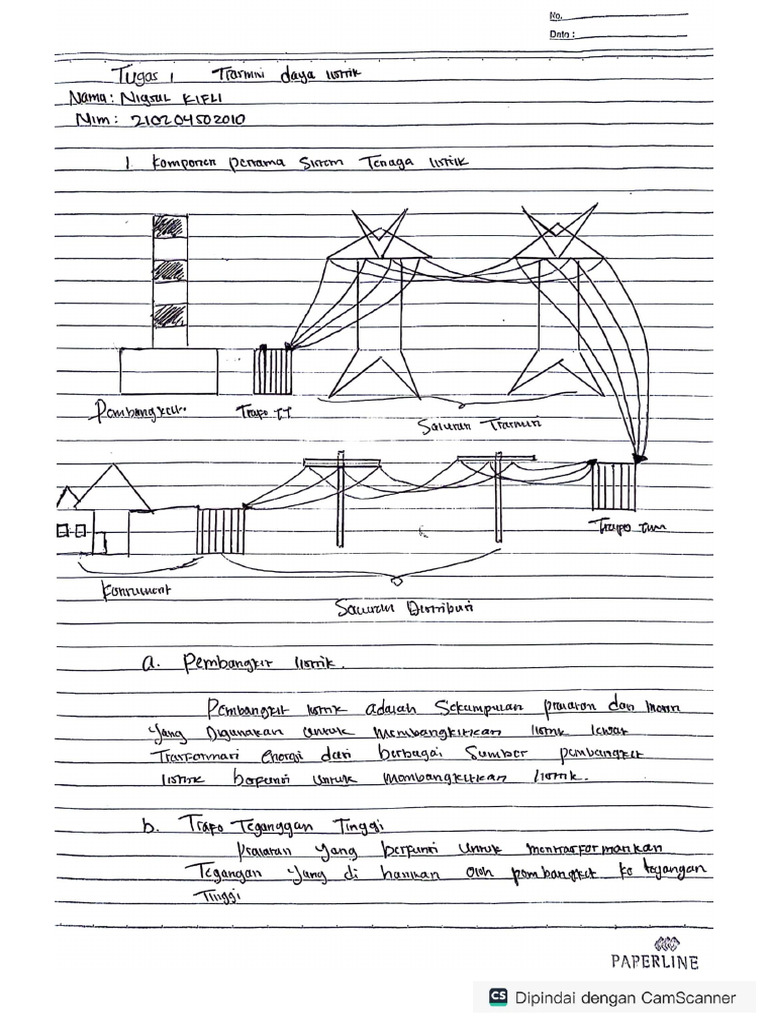 No.
Date :
Tugas 1 Trasmisi daya listrik
Nama: Niqsul Kifli
Nim: 210204502010
1. Komponen Pertama Sistem Tenaga listrik
Pembangkit.
Trapo TT
Saluran Transmisi
Trapo TM
Konsument
Saluran Distribusi
a. Pembangkit listrik.
Pembangkit listrik adalah Sekumpulan pralatan dan mesin
yang Digunakan untuk membangkitkan listrik lewat
Trasformasi energi dari berbagai Sumber pembangkit
listrik berfungsi untuk membangkitkan listrik.
b. Trapo Teganggan Tinggi
pralatan yang berfungsi untuk mentrasformasikan
Tegangan yang di hasilkan oleh pembangkit ke tegangan
Tinggi
PAPERLINE
CS Dipindai dengan CamScanner